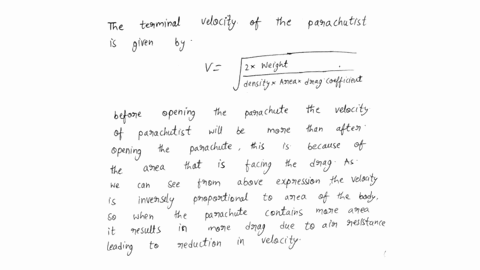 The terminal velocity of the parachutist
is given by.
V= √ 2× Weight
density× Area× drag coefficient
before opening the parachute the velocity
of parachutist will be more than after
opening the parachute, this is because of
the area that is facing the drag. As
we can see from above expression, the velocity
is inversly proportional to area of the body.
so when the parachute contains more area
it results in more drag due to air resistance
leading to reduction in velocity.